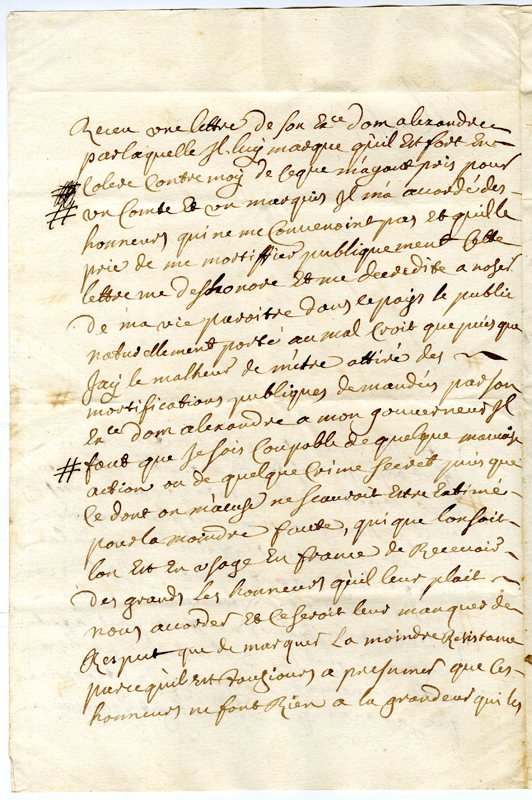 Receu une lettre de son Ex.ce dom alexandre
par laquelle Il luy marque qu'il Est fort En
Colere Contre moy de ceque m'ayant pris pour
# un Comte Et un marquis Il m'a accordé des
# honneurs qui ne me Convenoint pas et qu'il le
prie de me mortiffier publiquement Cette
lettre me deshonore Et me decredite a noser
De ma vie paroitre dans le pays le public
naturellement porté au mal Croit que puis que
Jay le malheur de m'etre attiré des
mortifications publiques demandées par son
Ex.ce dom alexandre a mon gouverneur Il
# faut que Je sois Coupable de quelque mauvaise
action ou de quelque Crime secret puis que
Ce dont on m'acuse ne scauroit Estre Estimé
pour la moindre faute, qui que lon soit
lon Est En usage En france de Recevoir
Des grands Les honneurs qu'il leur plait
nous accorder Et Ce seroit leur manquer de
Respect que de marquer La moindre Resistance
parcequ'il Est toujours a presumer que Ces
honneurs ne font Rien a la grandeur qui les